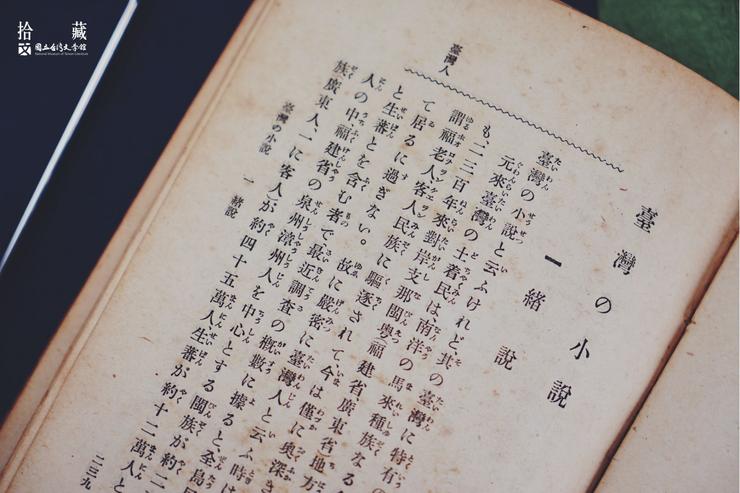 拾藏
國立台灣文學館
National Museum of Taiwan Literature
臺灣の小說
一 緒說
臺灣の小說と云ふけれど、其の臺灣に特有の
元來臺灣の土着民は南洋の馬來種族なる
も、二三百年來對岸支那閩粤(福建省廣東省)地方
謂福老人客人民族に驅逐されて今は僅に奧深き
て居るに過ぎない。故に嚴密に臺灣人と云ふ時は
と生蕃とを含む者で、最近調査の概數に據ると、全島
人の中、福建省の泉州漳州人を中心とする閩族が約二
族廣東人、一に客人)が約四十五萬人、生蕃が約十二萬人と
臺灣人
臺灣の小說 一 緒說
二三九